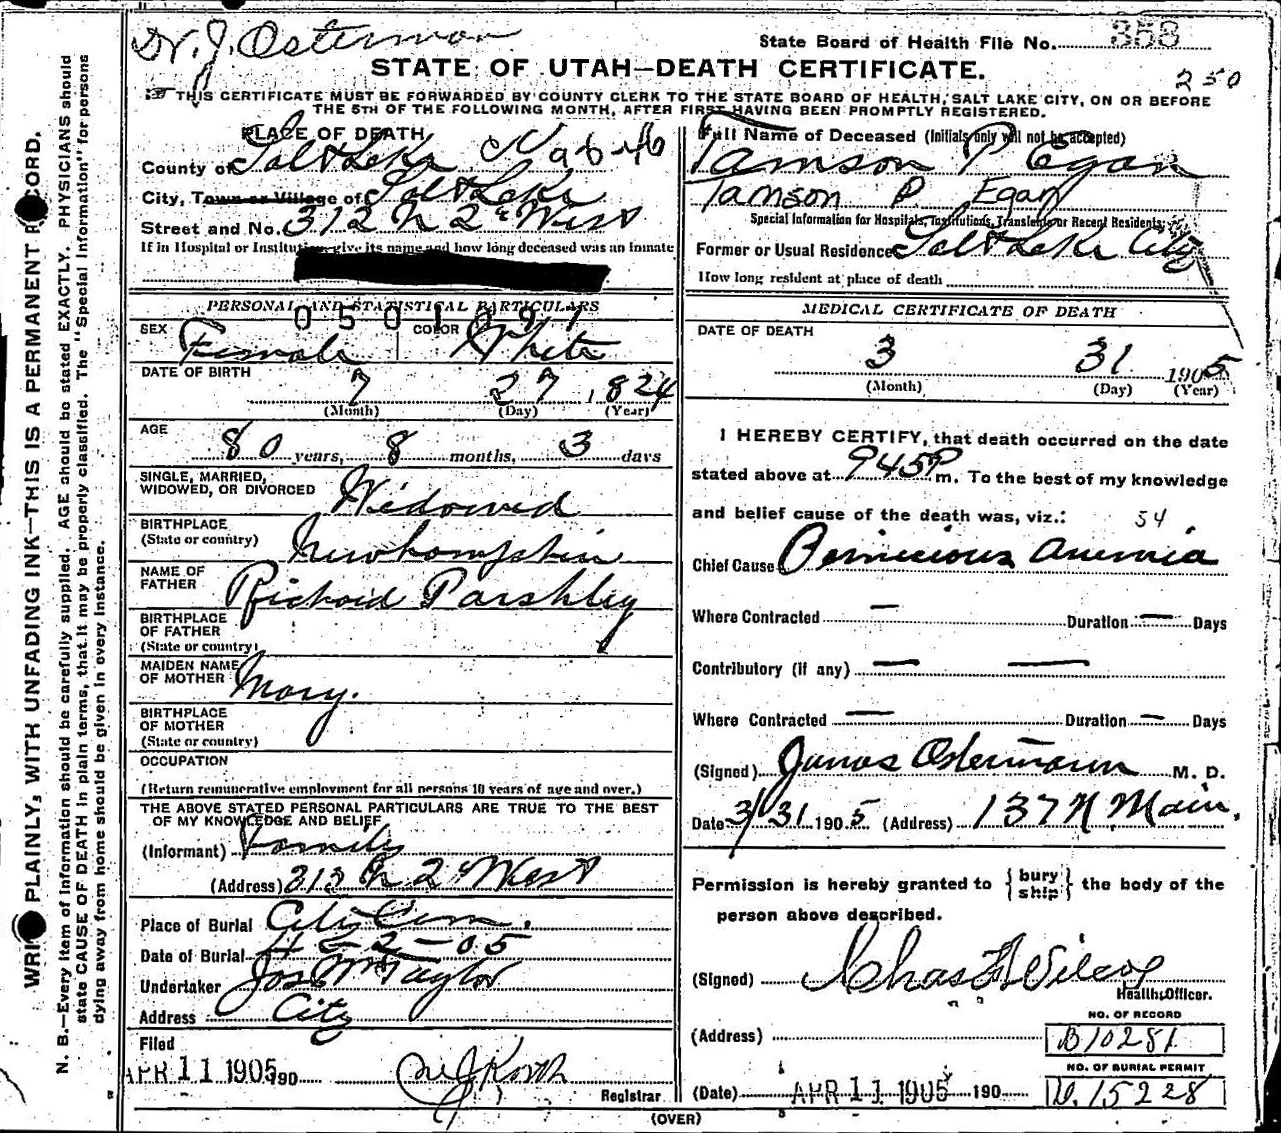 Dr. J. Osterman
State Board of Health File No. 353
STATE OF UTAH—DEATH CERTIFICATE.
250
THIS CERTIFICATE MUST BE FORWARDED BY COUNTY CLERK TO THE STATE BOARD OF HEALTH, SALT LAKE CITY, ON OR BEFORE
THE 5TH OF THE FOLLOWING MONTH, AFTER FIRST HAVING BEEN PROMPTLY REGISTERED.
WRITE PLAINLY, WITH UNFADING INK—THIS IS A PERMANENT RECORD.
N. B.—Every item of information should be carefully supplied. AGE should be stated EXACTLY. PHYSICIANS should
state CAUSE OF DEATH in plain terms, that it may be properly classified. The "Special Information" for persons
dying away from home should be given in every instance.
PLACE OF DEATH
County of Salt Lake
City, Town or Village of Salt Lake
Street and No. 312 N 2d West
If in Hospital or Institution give its name and how long deceased was an inmate
PERSONAL AND STATISTICAL PARTICULARS
0501091
SEX Female COLOR White
DATE OF BIRTH
7 27 1824
(Month) (Day) (Year)
AGE
80 years, 8 months, 3 days
SINGLE, MARRIED,
WIDOWED, OR DIVORCED Widowed
BIRTHPLACE
(State or country) Newhampshire
NAME OF
FATHER Richard Parshley
BIRTHPLACE
OF FATHER
(State or country)
MAIDEN NAME
OF MOTHER Mary.
BIRTHPLACE
OF MOTHER
(State or country)
OCCUPATION
(Return remunerative employment for all persons 10 years of age and over.)
THE ABOVE STATED PERSONAL PARTICULARS ARE TRUE TO THE BEST
OF MY KNOWLEDGE AND BELIEF
(Informant) Family
(Address) 312 N 2d West
Place of Burial City Cem.
Date of Burial 4-2-05
Undertaker Jos Wm Taylor
Address City
Filed
APR 11 1905 190
Registrar
Full Name of Deceased (Initials only will not be accepted)
Tamson P Egan
Tamson P. Egan
Special Information for Hospitals, Institutions, Transients or Recent Residents.
Former or Usual Residence Salt Lake City
How long resident at place of death
MEDICAL CERTIFICATE OF DEATH
DATE OF DEATH
3 31 1905
(Month) (Day) (Year)
I HEREBY CERTIFY, that death occurred on the date
stated above at 945 P m. To the best of my knowledge
and belief cause of the death was, viz.: 54
Chief Cause Pernicious Anemia
Where Contracted — Duration — Days
Contributory (if any) — —
Where Contracted — Duration — Days
(Signed) Jonas Ostermann M. D.
Date 3/31 1905 (Address) 137 N Main.
Permission is hereby granted to { bury ship } the body of the
person above described.
(Signed) Chas F Wilcox
Health Officer.
NO. OF RECORD
(Address) B10281
NO. OF BURIAL PERMIT
(Date) APR 11 1905 190 D. 15228
(OVER)